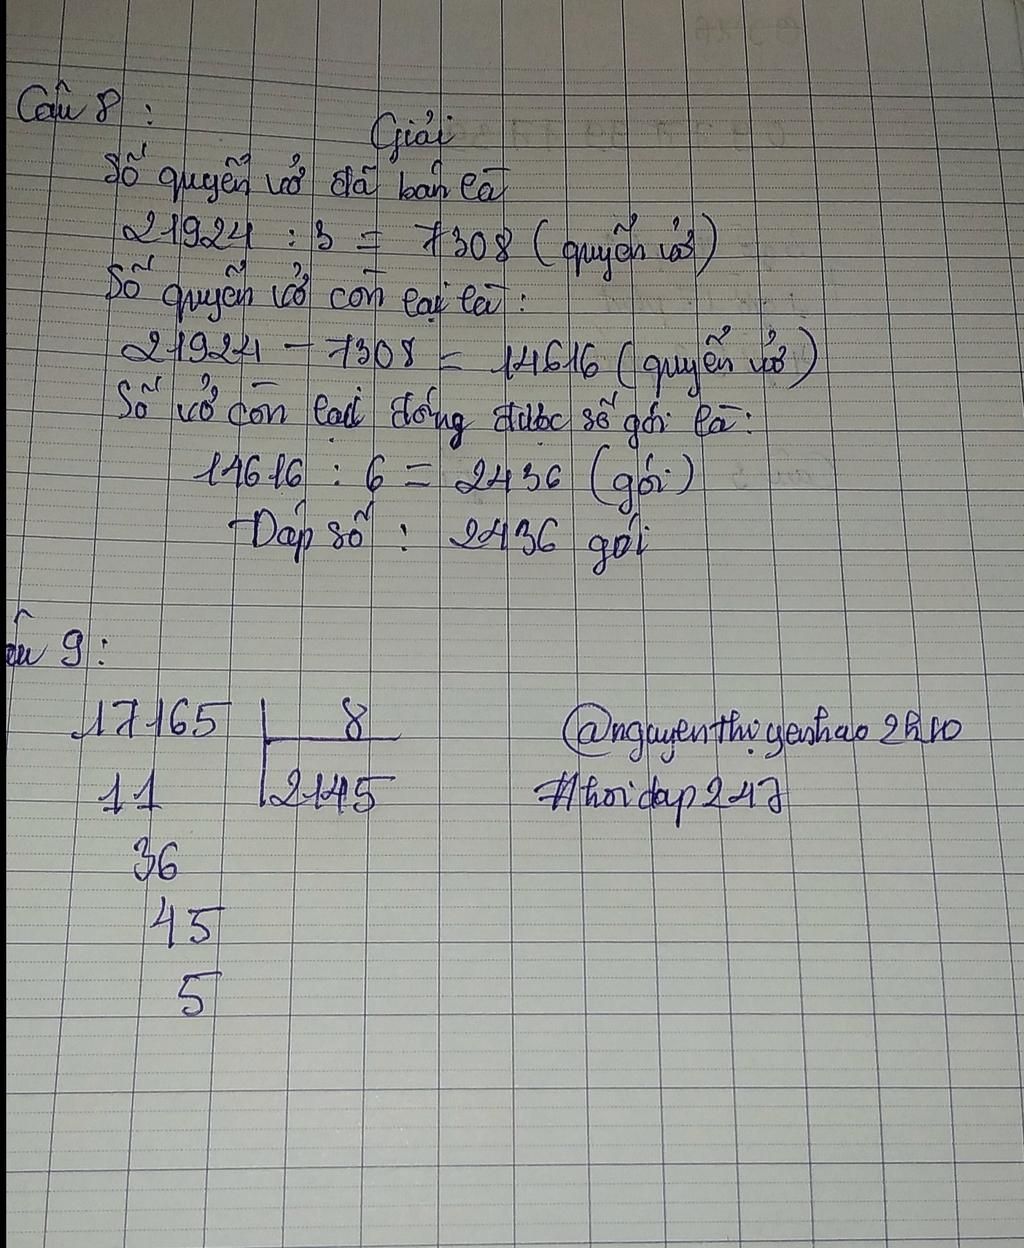 Câu 8 :
Giải
Số quyển vở đã bán là
21924 : 3 = 7308 (quyển vở)
Số quyển vở còn lại là :
21924 - 7308 = 14616 (quyển vở)
Số vở còn lại đóng được số gói là :
14616 : 6 = 2436 (gói)
Đáp số : 2436 gói
âu 9 :
17165 8
11 2145
36
45
5
@nguyenthiyenhao2k10
#hoidap247